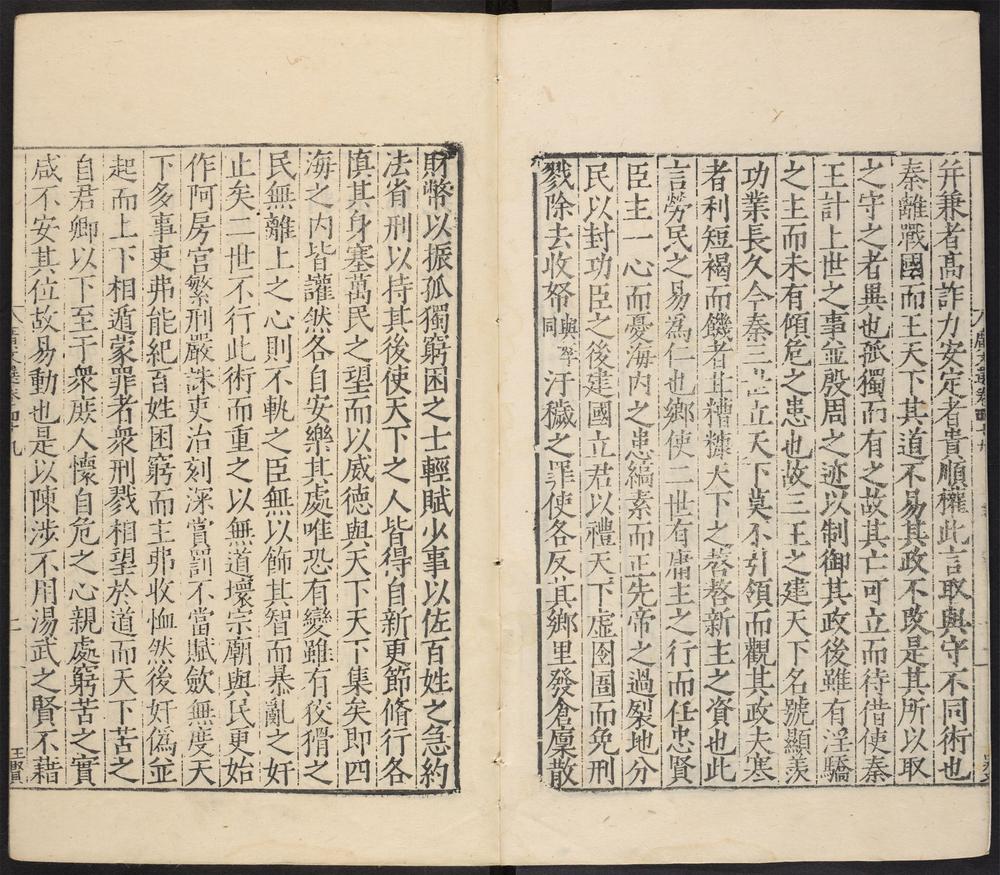 并兼者高詐力安定者貴順權此言取與守不同術也
秦離戰國而王天下其道不易其政不改是其所以取
之守之者異也孤獨而有之故其亡可立而待借使秦
王計上世之事並殷周之迹以制御其政後雖有淫驕
之主而未有傾危之患也故三王之建天下名號顯羙
功業長久今秦二世立天下莫不引領而觀其政夫寒
者利短褐而饑者甘糟糠天下之嗸嗸新主之資也此
言勞民之易為仁也鄉使二世有庸主之行而任忠賢
臣主一心而憂海內之患縞素而正先帝之過裂地分
民以封功臣之後建國立君以禮天下虛囹圄而免刑
戮除去收帑與孥同汙穢之罪使各反其鄉里發倉廩散
財幣以振孤獨窮困之士輕賦少事以佐百姓之急約
法省刑以持其後使天下之人皆得自新更節脩行各
慎其身塞萬民之望而以威德與天下天下集矣即四
海之內皆讙然各自安樂其處唯恐有變雖有狡猾之
民無離上之心則不軌之臣無以飾其智而暴亂之奸
止矣二世不行此術而重之以無道壞宗廟與民更始
作阿房宮繁刑嚴誅吏治刻深賞罰不當賦斂無度天
下多事吏弗能紀百姓困窮而主弗收恤然後奸偽並
起而上下相遁蒙罪者衆刑戮相望於道而天下苦之
自君卿以下至于衆庶人懷自危之心親處窮苦之實
咸不安其位故易動也是以陳涉不用湯武之賢不藉
二